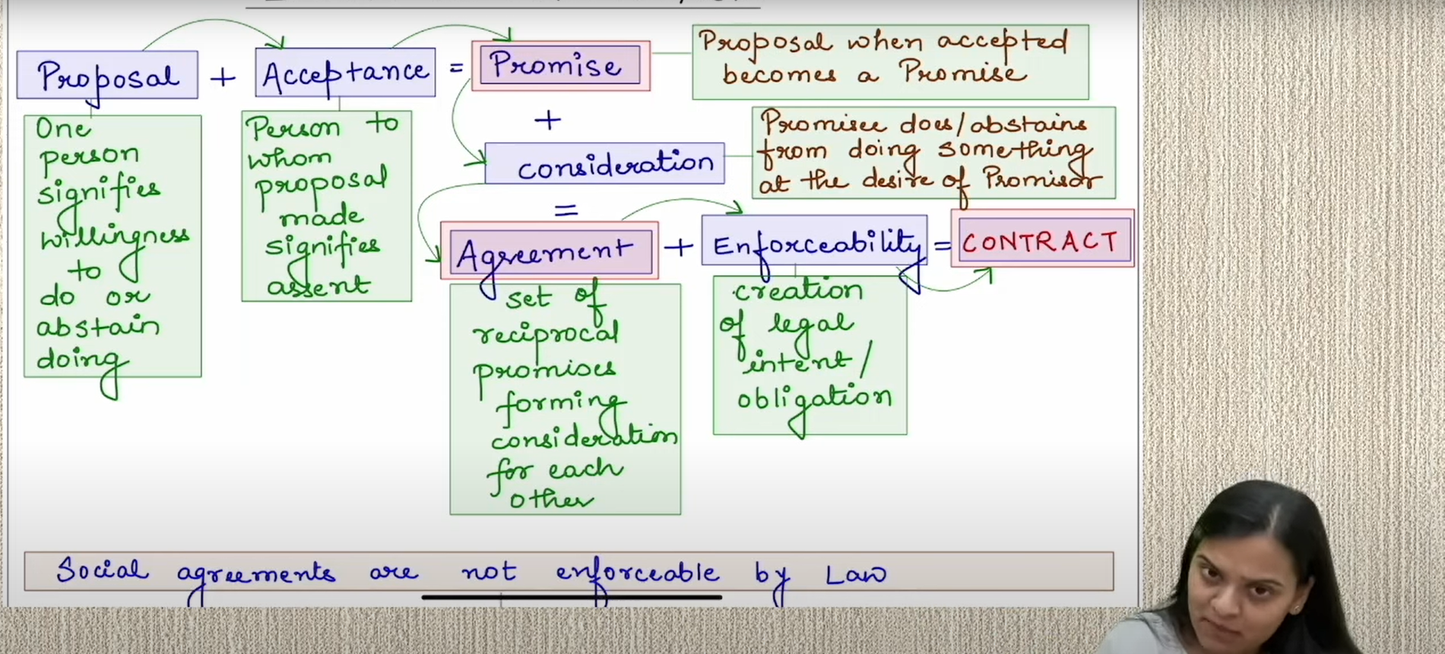 Proposal + Acceptance = Promise
Proposal when accepted
becomes a Promise
One
person
signifies
willingness
to
do or
abstain
doing
Person to
whom
proposal
made
signifies
assent
+
consideration
Promisee does/abstains
from doing something
at the desire of Promisor
=
Agreement + Enforceability = CONTRACT
set of
reciprocal
promises
forming
consideration
for each
other
creation
of legal
intent/
obligation
Social agreements are not enforceable by Law